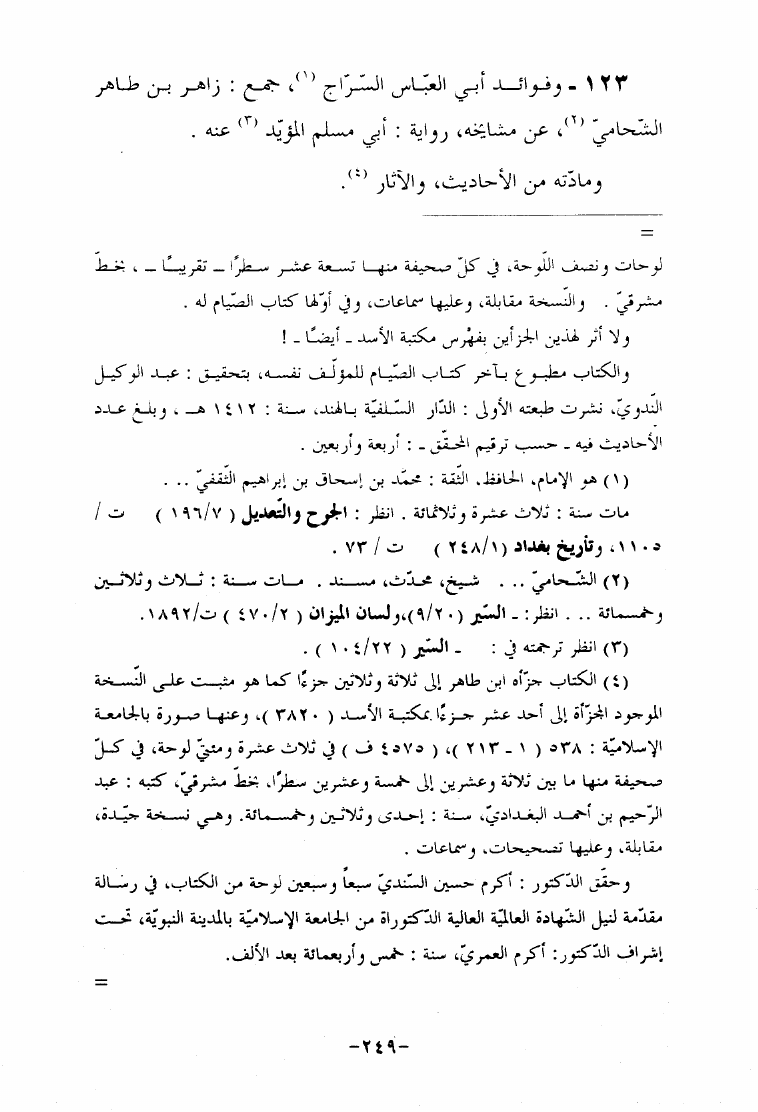 ١٢٣ - وفوائد أبي العبّاس السّرّاج (١)، جمع : زاهر بن طاهر
الشّحاميّ (٢)، عن مشايخه، رواية : أبي مسلم المؤيّد (٣) عنه .
ومادّته من الأحاديث، والآثار (٤).
=
لوحات ونصف اللّوحة، في كلّ صحيفة منها تسعة عشر سطرًا – تقريبًا – ، بخطّ
مشرقيّ . والنّسخة مقابلة، وعليها سماعات، وفي أوّلها كتاب الصّيام له .
ولا أثر لهذين الجزأين بفهْرس مكتبة الأسد - أيضًا - !
والكتاب مطبوع بآخر كتاب الصّيام للمؤلّف نفسه، بتحقيق : عبد الوكيل
النّدويّ، نشرت طبعته الأولى : الدّار السّلفيّة بالهند، سنة : ١٤١٢ هـ ، وبلغ عدد
الأحاديث فيه - حسب ترقيم المحقّق - : أربعة وأربعين .
(١) هو الإمام، الحافظ، الثّقة : محمّد بن إسحاق بن إبراهيم الثّقفيّ . . .
مات سنة : ثلاث عشرة وثلاثمائة . انظر : الجرح والتّعديل ( ٧/ ١٩٦ ) ت /
١١٠٥، وتأريخ بغداد (١/ ٢٤٨ ) ت / ٧٣ .
(٢) الشّحاميّ . . . شيخ، محدّث، مسند . مات سنة : ثلاث وثلاثين
وخمسمائة . . . انظر: - السّير (٢٠/ ٩)،ولسان الميزان ( ٢/ ٤٧٠ ) ت/١٨٩٢.
(٣) انظر ترجمته في : - السّير ( ٢٢/ ١٠٤ ) .
(٤) الكتاب جزّأه ابن طاهر إلى ثلاثة وثلاثين جزءًا كما هو مثبت على النّسخة
الموجود المجزّأة إلى أحد عشر جزءًا بمكتبة الأسد ( ٣٨٢٠ )، وعنها صورة بالجامعة
الإسلاميّة : ٥٣٨ ( ١ - ٢١٣ )، ( ٤٥٧٥ ف ) في ثلاث عشرة ومئتي لوحة، في كلّ
صحيفة منها ما بين ثلاثة وعشرين إلى خمسة وعشرين سطرًا، بخطّ مشرقيّ، كتبه : عبد
الرّحيم بن أحمد البغداديّ، سنة : إحدى وثلاثين وخمسمائة. وهي نسخة جيّدة،
مقابلة، وعليها تصحيحات، وسماعات .
وحقّق الدّكتور : أكرم حسين السّنديّ سبعاً وسبعين لوحة من الكتاب، في رسالة
مقدّمة لنيل الشّهادة العالميّة العالية الدّكتوراة من الجامعة الإسلاميّة بالمدينة النبويّة، تحت
إشراف الدّكتور: أكرم العمريّ، سنة : خمس وأربعمائة بعد الألف.
=
-٢٤٩-